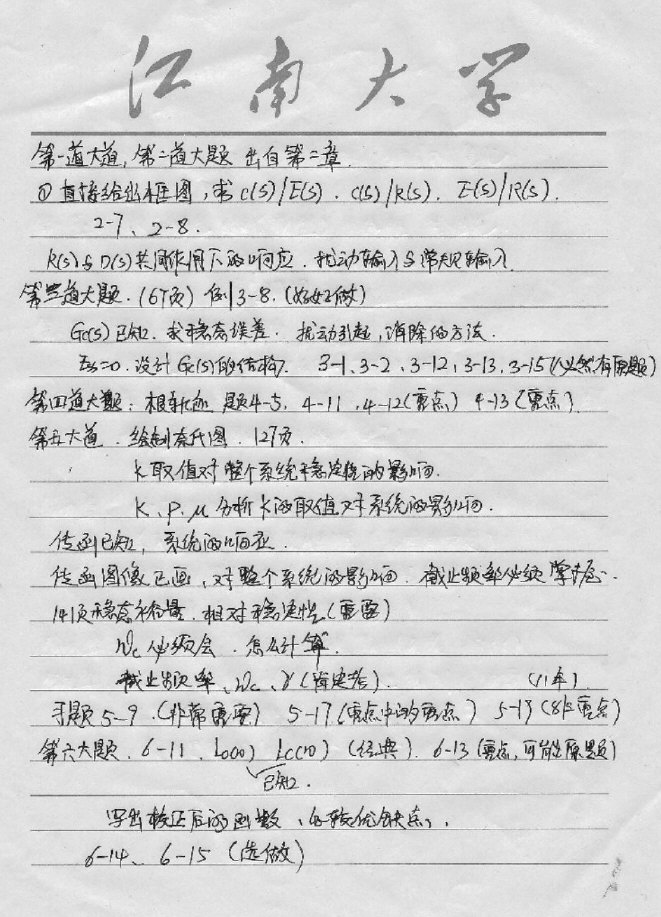 江南大学
第一道大道,第二道大题 出自第二章
① 直接给出框图,求C(S)/E(S). C(S)/R(S). E(S)/R(S).
2-7、2-8.
R(S)与D(S)共同作用下的响应. 扰动输入与常规输入.
第三道大题.(67页) 例3-8.(好好做)
G(S)已知. 求稳态误差. 扰动引起,消除的方法.
Ess=0. 设计Gc(S)的结构. 3-1、3-2、3-12、3-13、3-15(必然有原题)
第四道大题:根轨迹 题4-5、4-11、4-12(重点) 4-13(重点)
第五大道. 绘制奈氏图. 127页.
K取值对整个系统稳定性的影响.
K、P、μ 分析K的取值对系统的影响.
传函已知,系统的响应.
传函图像已画,对整个系统的影响. 截止频率必须掌握.
141页稳态裕量、相对稳定性(重要)
Wc必须会. 怎么计算.
截止频率、Wc、γ(肯定考). (11年)
习题5-9.(非常重要) 5-17(重点中的重点) 5-19(8年重点)
第六大题. 6-11. L0(ω) Lc(ω) (经典). 6-13(重点,可能原题)
已知.
写出校正后的函数、比较优缺点.
6-14、6-15(选做)